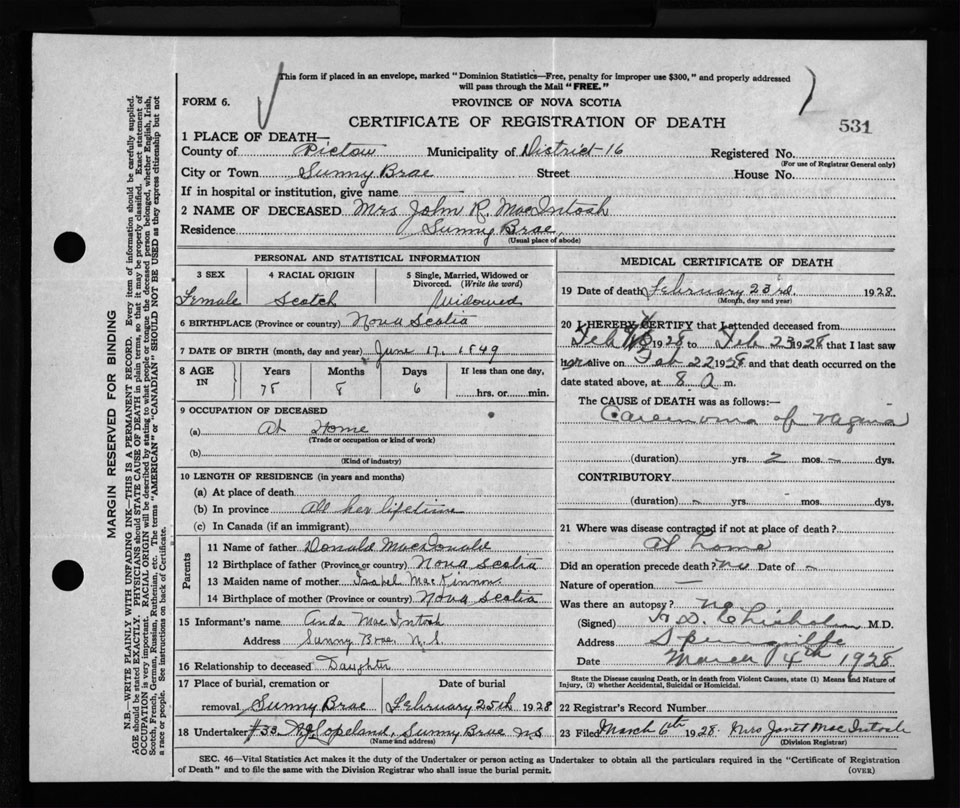 This form if placed in an envelope, marked "Dominion Statistics—Free, penalty for improper use $300," and properly addressed
will pass through the Mail "FREE."
FORM 6.
PROVINCE OF NOVA SCOTIA
CERTIFICATE OF REGISTRATION OF DEATH
531
1 PLACE OF DEATH—
County of Pictou Municipality of District-16 Registered No.
(For use of Registrar General only)
City or Town Sunny Brae Street House No.
If in hospital or institution, give name
2 NAME OF DECEASED Mrs John R. MacIntosh
Residence Sunny Brae
(Usual place of abode)
PERSONAL AND STATISTICAL INFORMATION
3 SEX 4 RACIAL ORIGIN 5 Single, Married, Widowed or
Divorced. (Write the word)
Female Scotch Widowed
6 BIRTHPLACE (Province or country) Nova Scotia
7 DATE OF BIRTH (month, day and year) June 17. 1849
8 AGE IN Years Months Days If less than one day,
78 8 6 hrs. or min.
9 OCCUPATION OF DECEASED
(a) At Home
(Trade or occupation or kind of work)
(b)
(Kind of industry)
10 LENGTH OF RESIDENCE (in years and months)
(a) At place of death
(b) In province All her lifetime
(c) In Canada (if an immigrant)
Parents
11 Name of father Donald MacDonald
12 Birthplace of father (Province or country) Nova Scotia
13 Maiden name of mother Isabel MacKinnon
14 Birthplace of mother (Province or country) Nova Scotia
15 Informant's name MacIntosh
Address Sunny Brae, N.S.
16 Relationship to deceased Daughter
17 Place of burial, cremation or Date of burial
removal Sunny Brae February 25th 1928
18 Undertaker #33 Copeland, Sunny Brae N S
(Name and address)
MEDICAL CERTIFICATE OF DEATH
19 Date of death February 23rd 1928
(Month, day and year)
20 I HEREBY CERTIFY that I attended deceased from
Feb 1928 to Feb 23 1928 that I last saw
her alive on Feb 22 1928 and that death occurred on the
date stated above, at 8. a m.
The CAUSE of DEATH was as follows:—
Carcinoma of vagina
(duration) yrs. 2 mos. – dys.
CONTRIBUTORY
(duration) – yrs. mos. dys.
21 Where was disease contracted if not at place of death?
At home
Did an operation precede death? no Date of –
Nature of operation —
Was there an autopsy? no
(Signed) Chisholm M.D.
Address Springville
Date March 4th 1928
State the Disease causing Death, or in death from Violent Causes, state (1) Means and Nature of
Injury, (2) whether Accidental, Suicidal or Homicidal.
22 Registrar's Record Number
23 Filed March 6th 1928. Mrs Janet MacIntosh
(Division Registrar)
SEC. 46—Vital Statistics Act makes it the duty of the Undertaker or person acting as Undertaker to obtain all the particulars required in the "Certificate of Registration
of Death" and to file the same with the Division Registrar who shall issue the burial permit.
(OVER)
MARGIN RESERVED FOR BINDING
N.B.—WRITE PLAINLY WITH UNFADING INK—THIS IS A PERMANENT RECORD. Every item of information should be carefully supplied.
AGE should be stated EXACTLY. PHYSICIANS should STATE CAUSE OF DEATH in plain terms, so that it may be properly classified. Exact statement of
OCCUPATION is very important. RACIAL ORIGIN will be described by stating to what people or tongue the deceased person belonged, whether English, Irish,
Scotch, French, German, Russian, Ruthenian, etc. The terms "AMERICAN" or "CANADIAN" SHOULD NOT BE USED as they express citizenship but not
a race or people. See instructions on back of Certificate.